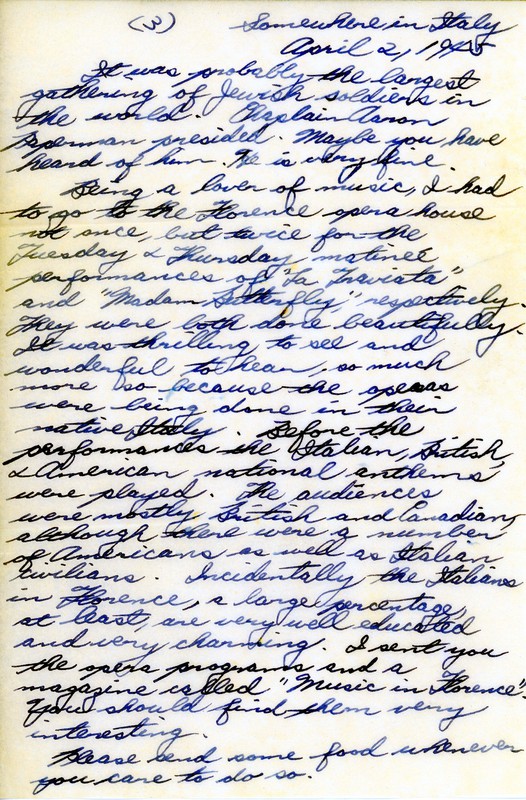 (3)
Somewhere in Italy
April 2, 1945
It was probably the largest
gathering of Jewish soldiers in
the world. Chaplain Aaron
Paperman presided. Maybe you have
heard of him. He is very fine.
Being a lover of music, I had
to go to the Florence opera house
not once, but twice for the
Tuesday & Thursday matineé
performances of "La Traviata"
and "Madam Butterfly," respectively.
They were both done beautifully.
It was thrilling to see and
wonderful to hear, so much
more so because the operas
were being done in their
native Italy. Before the
performances the Italian, British,
& American national anthems
were played. The audiences
were mostly British and Canadian,
although there were a number
of Americans as well as Italian
civilians. Incidentally the Italians
in Florence, a large percentage,
at least, are very well educated
and very charming. I sent you
the opera programs and a
magazine called "Music in Florence".
You should find them very
interesting.
Please send some food whenever
you care to do so.